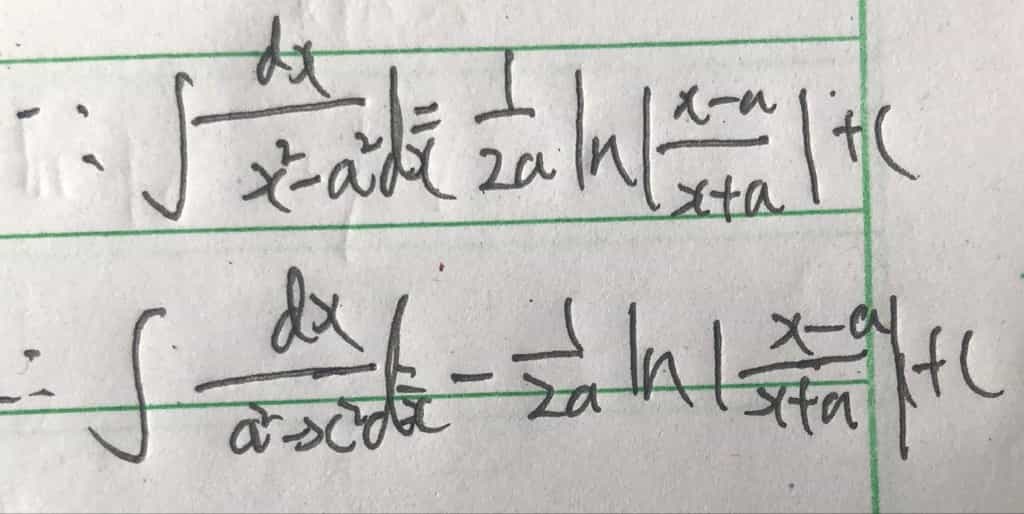 ∵ ∫ dx/(x²-a²) dx = 1/2a ln|(x-a)/(x+a)| + C
∴ ∫ dx/(a²-x²) dx = -1/2a ln|(x-a)/(x+a)| + C